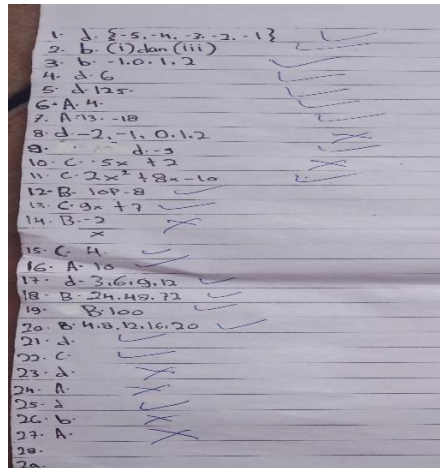 1. d. {-5, -4, -3, -2, -1}
2. b. (i) dan (iii)
3. b. -1.0.1.2
4. d. 6
5. d. 125.
6. A. 4.
7. A. 13. -18
8. d -2, -1, 0.1.2
9. d. -3
10. C. -5x + 2
11. C. 2x² + 8x - 10
12. B. 10P-8
13. C. 9x + 7
14. B. -2
x
15. C. 4.
16. A. 10
17. d. 3.6.9.12
18. B. 24.48.72
19. B. 100
20. B. 4.8.12.16.20
21. d.
22. C.
23. d.
24. A.
25. d
26. b.
27. A.
28.
29.